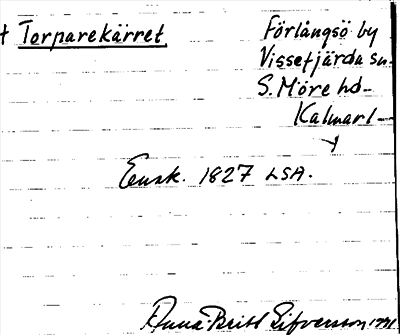 + Torparekärret
Förlångsö by
Vissefjärda sn.
S. Möre hd.
Kalmarl.
Ensk. 1827 LSA.
Anna-Britt Sifversson